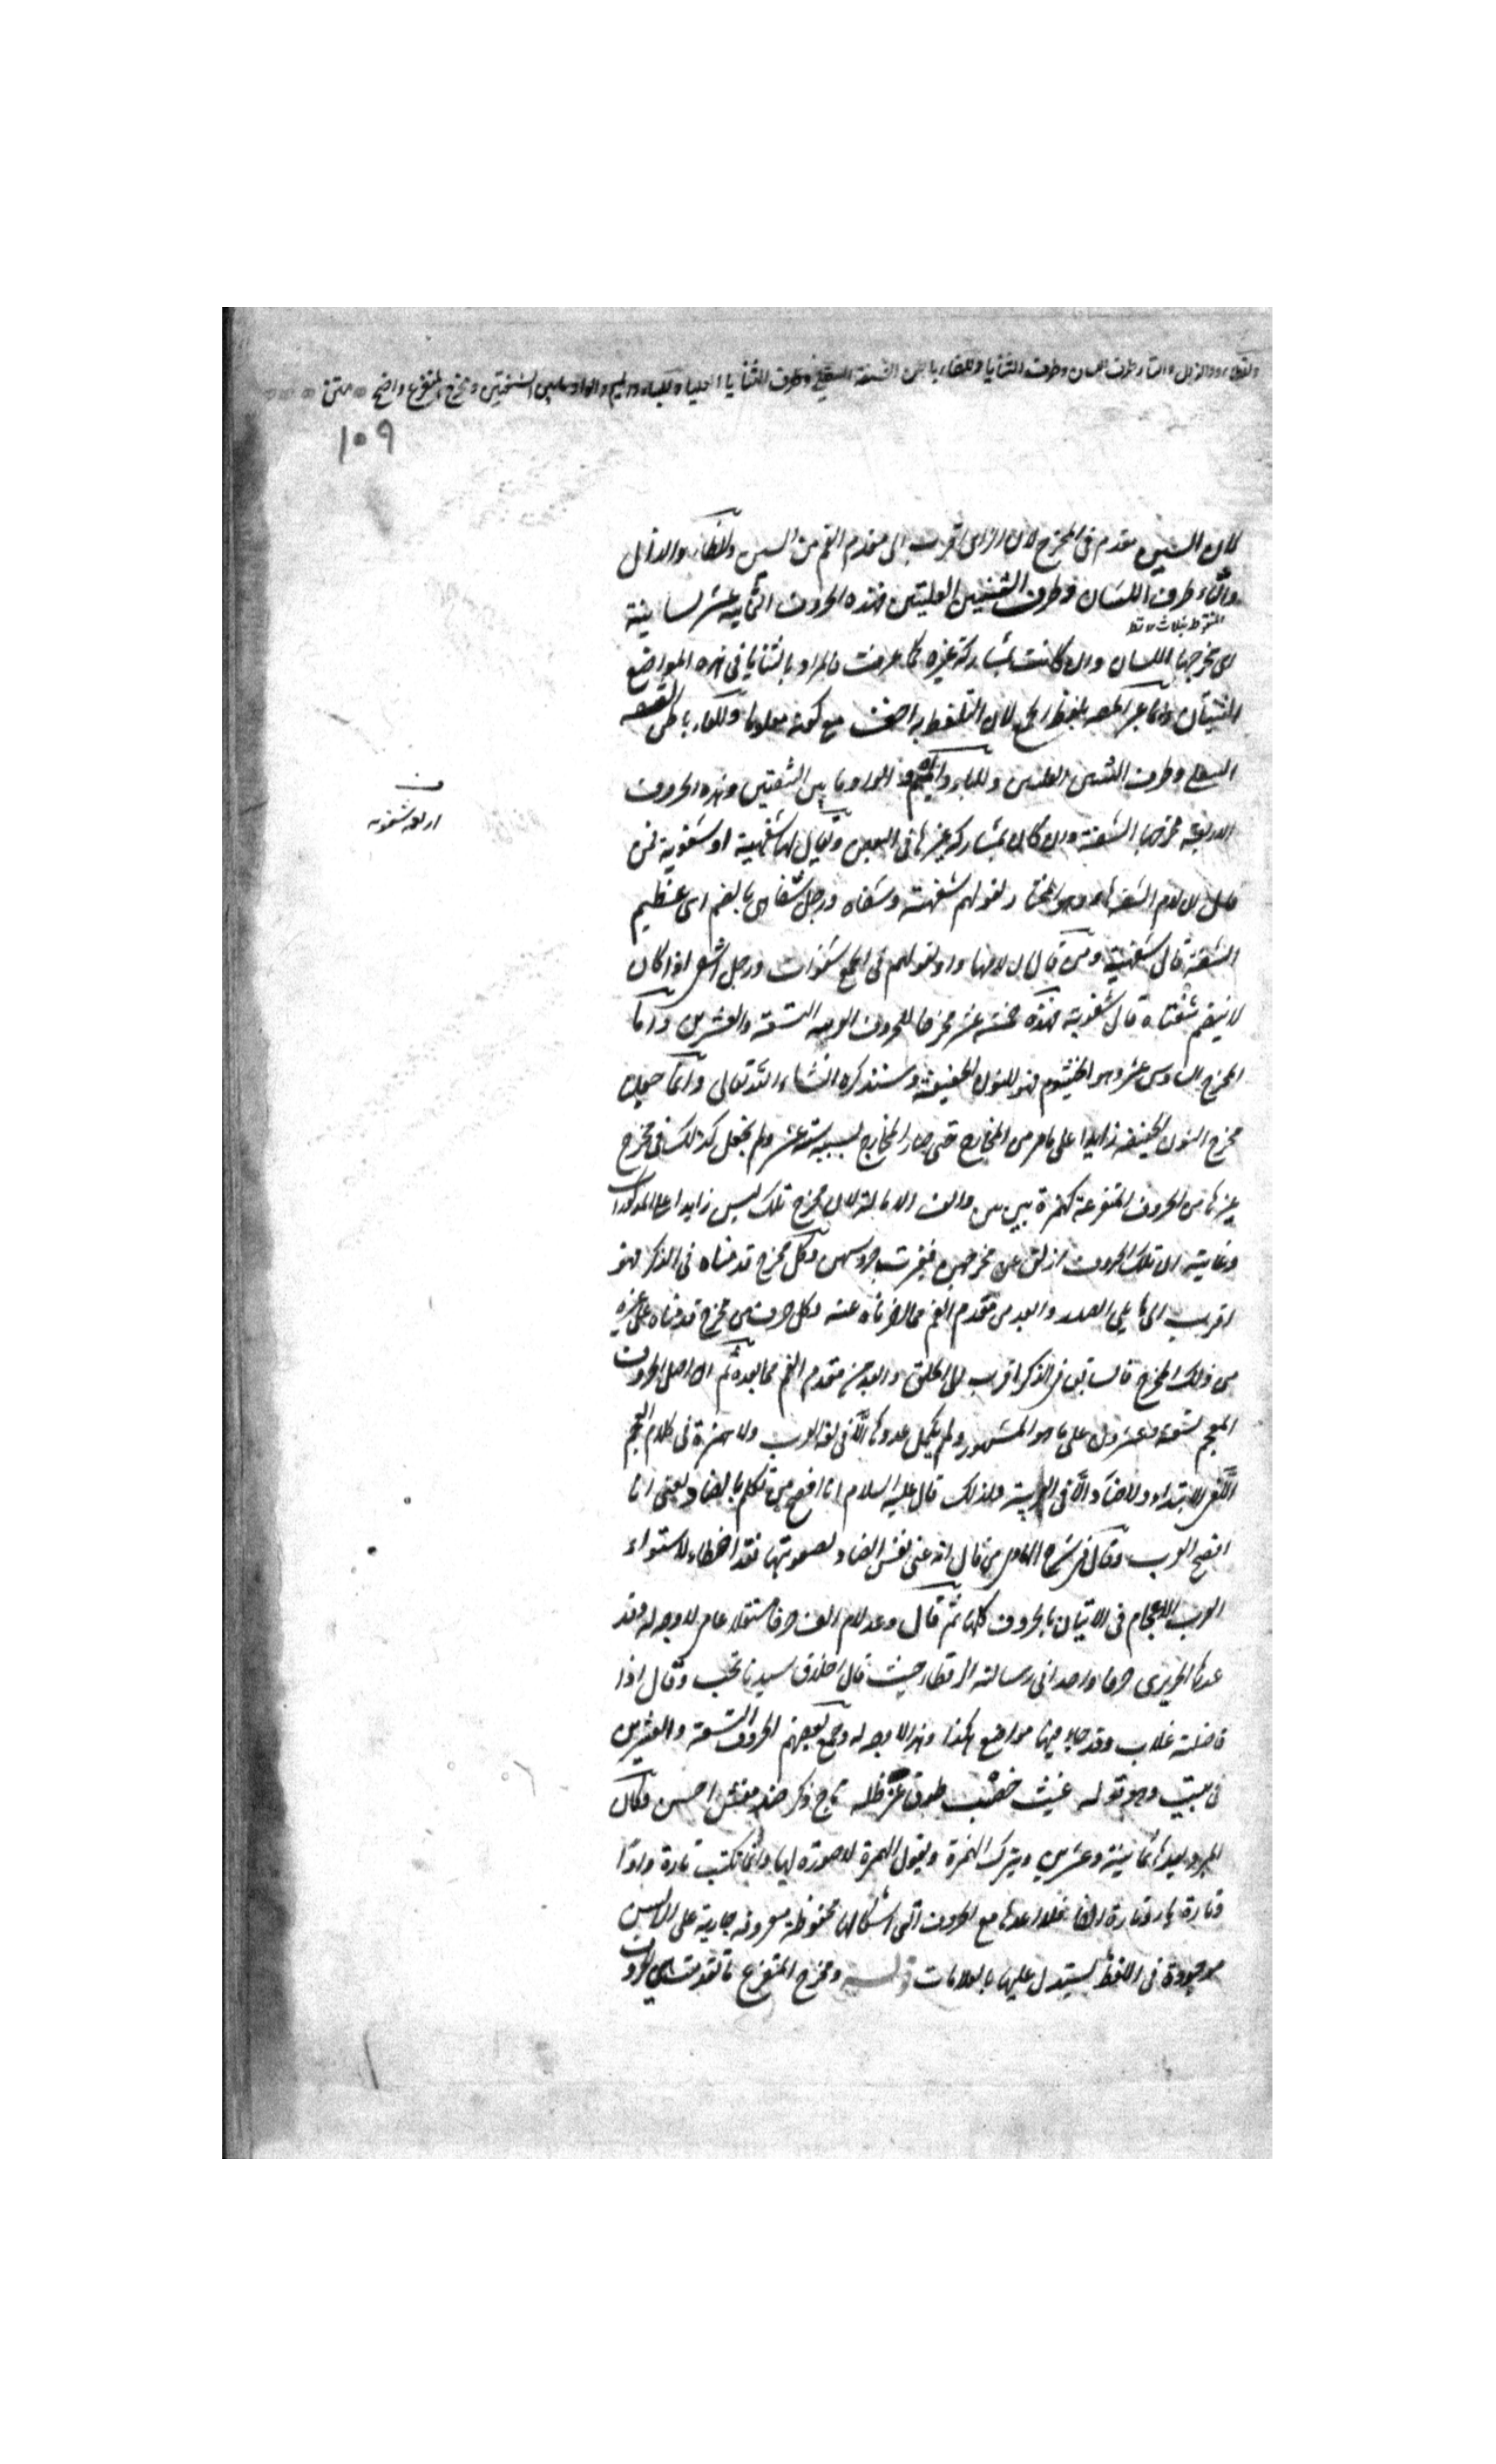 وللظاء والذال والثاء طرف اللسان وطرف الثنايا وللفاء باطن الشفة السفلى وطرف الثنايا العليا وللباء والميم والواو ما بين الشفتين ومخرج المتفرع واضح متن
١٠٩
لان السين مقدم فى المخرج لان الزاى اقرب الى مقدم الفم من السين وللظاء والذال
والثاء طرف اللسان وطرف الثنيتين العليتين فهذه الحروف الثمانية عشر لسانية
المنقوط بثلاث نقط
اى مخرجها اللسان وان كانت بمشاركة غيره كما عرفت فالمراد بالثنايا فى هذه المواضع
الثنيتان وانما عبر المصـ بلفظ الجمع لان التلفظ به اخف مع كونه معلوما وللفاء باطن الشفة
السفلى وطرف الثنيتين العليتين وللباء والميم والواو ما بين الشفتين وهذه الحروف
ن
اربعة شفوية
الاربعة مخرجها الشفة وان كان بمشاركة غيرها فى البعض ويقال لها شفهية او شفوية فمن
قال ان لام الشفة هاء وهو المختار لقولهم شفيهة وشفاه ورجل شفاهى بالضم اى عظيم
الشفة قال شفهية ومن قال ان لامها واو لقولهم فى الجمع شفوات ورجل اشفى اذا كان
لا ينضم شفتاه قال شفوية فهذه خمسة عشر مخرجا للحروف العربية التسعة والعشرين واما
المخرج السادس عشر وهو الخيشوم فهو للنون الخفيفة وستذكره انشاء الله تعالى وانما جعل
مخرج النون الخفيفة زايدا على ما مر من المخارج حتى صار المخارج بسببه ستة عشر ولم يجعل كذلك فى مخرج
غيرها من الحروف المتفرعة كهمزة بين بين والف الامالة لان مخرج تلك ليس زايدا على المذكورات
وغايته ان تلك الحروف ازلق عن مخرجهن فتغيرت جروسهن وكل مخرج قدمناه فى الذكر فهو
اقرب الى ما يلى الصدر وابعد من مقدم الفم مما اخرناه عنه وكل حرف من مخرج قدمناه على غيره
من ذلك المخرج فالسابق فى الذكر اقرب الى الحلق وابعد من مقدم الفم مما بعده ثم ان اصل الحروف
المعجم تسعة وعشرون على ما هو المشهور ولم يكمل عددها الا فى لغة العرب ولا همزة فى كلام العجم
الا فى الابتداء ولا ضاد الا فى العربية ولذلك قال عليه السلام انا افصح من تكلم بالضاد يعنى انا
افصح العرب وقال فى شرح الهادى من قال انه عنى نفس الضاد لصعوبتها فقد اخطاء لاستواء
العرب للاعجام فى الاتيان بالحروف كلها ثم قال وعد لام الف حرفا مستقلا عامى لا وجه له وقد
عدها الحريرى حرفا واحدا فى رسالته الرقطاء حيث قال اخلاق سيدنا تحب وقال اذا
فاضلته غلاب وقد جاء فيها مواضع هكذا وهذا لا وجه له وجمع بعضهم الحروف التسعة والعشرين
فى بيت وهو قوله غيث خصب طوق عز ظله تاج ذكر ضد مفش احسن وكان
المبرد يعدها ثمانية وعشرين ويترك الهمزة ويقول الهمزة لا صورة لها وانما تكتب تارة واوا
وتارة ياء وتارة الفا فلا اعدها مع الحروف التى اشكالها محفوظة معروفة جارية على الالسن
موجودة فى اللفظ يستدل عليها بالعلامات قوله ومخرج المتفرع ما تقدمت هى الحروف